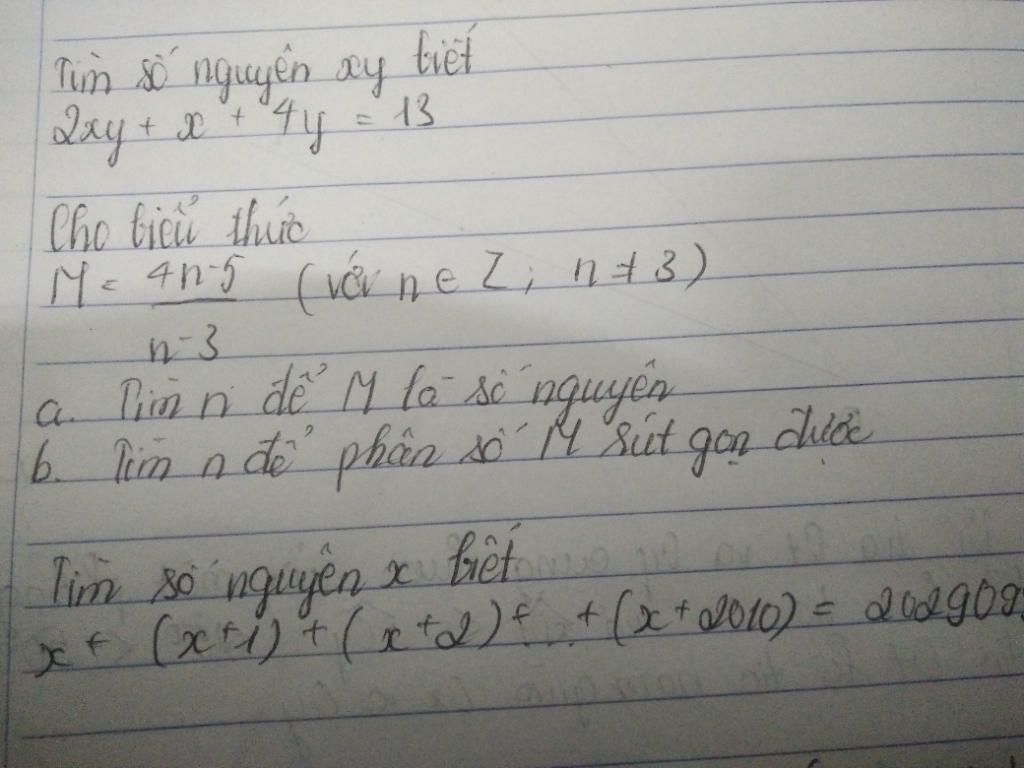 Tìm số nguyên xy biết
2xy + x + 4y = 13
Cho biểu thức
M = 4n-5 (với n ∈ Z; n ≠ 3)
n-3
a. Tìm n để M là số nguyên
b. Tìm n để phân số M rút gọn được
Tìm số nguyên x biết
x + (x+1) + (x+2) + ... + (x+2010) = 202909